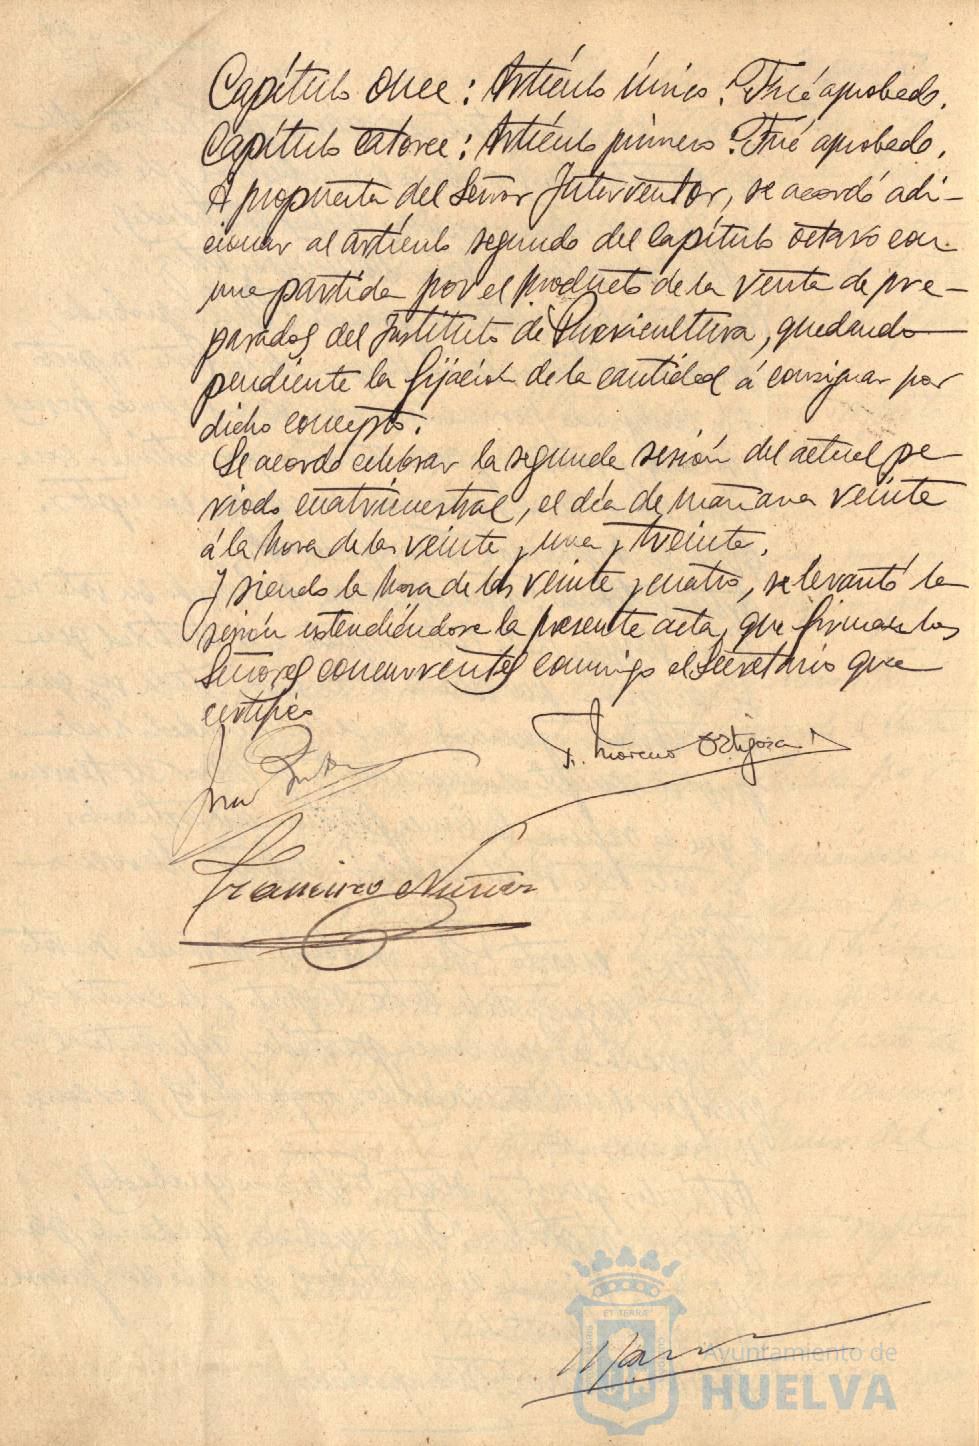 Capítulo Once: Artículo único: Fué aprobado.
Capítulo Catorce: Artículo primero: Fué aprobado.
A propuesta del Señor Interventor, se acordó adi-
cionar al artículo segundo del Capítulo Octavo con
una partida por el producto de la venta de pre-
parados del Instituto de Puericultura, quedando
pendiente la fijación de la cantidad á consignar por
dicho concepto.
Se acordó celebrar la segunda sesión del actual pe-
riodo cuatrimestral, el día de mañana veinte
á la hora de las veinte y una y treinta.
Y siendo la hora de las veinte y cuatro, se levantó la
sesión extendiéndose la presente acta, que firman los
Señores concurrentes conmigo el Secretario que
certifico
F. Moreno Ortigosa
Francisco Núñez
ET TERRÆ
Ayuntamiento de
HUELVA